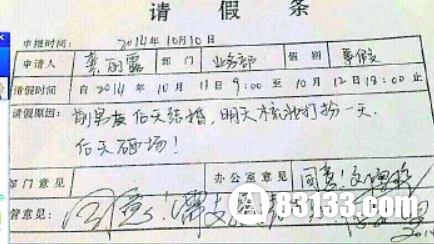 请假条
申报时间： 2014年10月10日
申请人 龚丽露 部门 业务部 假别 事假
请假时间： 自2014年10月11日9:00至10月12日18:00止
请假原因： 前男友后天结婚，明天梳妆打扮一天，
后天砸场！
部门意见 办公室意见 同意！
管意见： 同意！需支
83133.com
2014